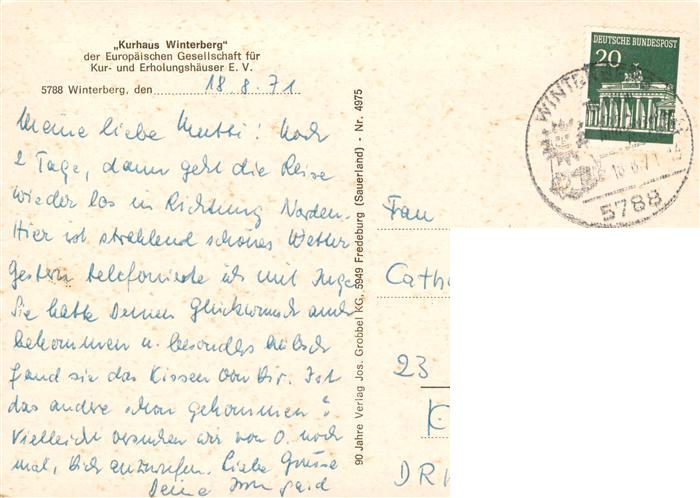 „Kurhaus Winterberg"
der Europäischen Gesellschaft für
Kur- und Erholungshäuser E. V.
5788 Winterberg, den 18.8.71
Meine liebe Mutti! Noch
2 Tage, dann geht die Reise
wieder los in Richtung Norden.
Hier ist strahlend schönes Wetter
Gestern telefonierte ich mit Inge
Sie hatte Deinen Glückwunsch auch
bekommen u. besonders hübsch
fand sie das Kissen von Dir. Ist
das andere schon gekommen?
Vielleicht versuchen wir von O. noch
mal, Dich anzurufen. Liebe Grüsse
Deine Irmgard
90 Jahre Verlag Jos. Grobbel KG, 5949 Fredeburg (Sauerland) - Nr. 4975
DEUTSCHE BUNDESPOST
20
5788
Frau
Cath
23
K
DR